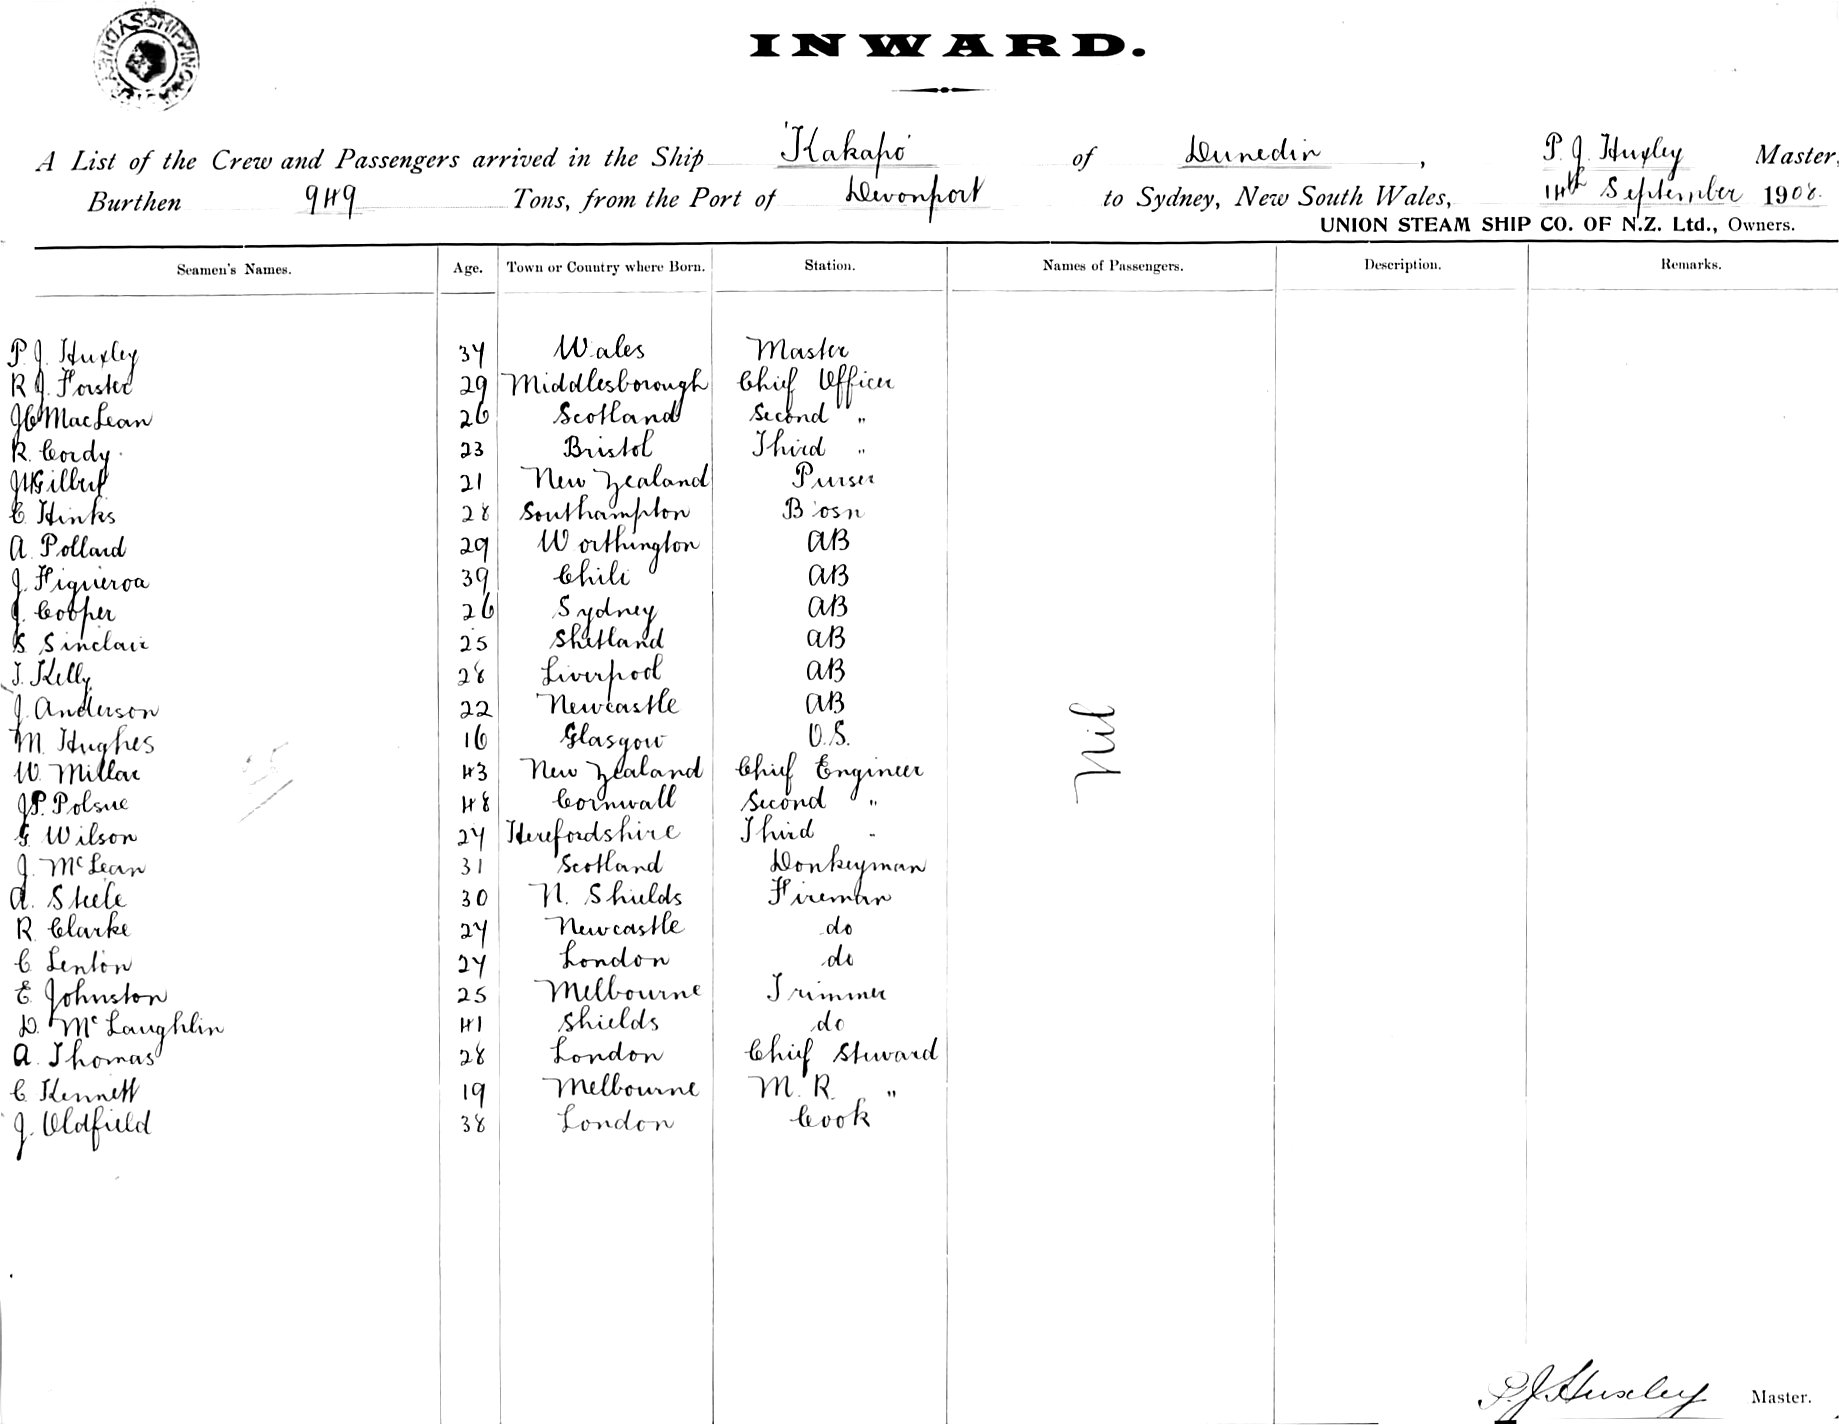 SYDNEY SHIPPING
INWARD.
A List of the Crew and Passengers arrived in the Ship 'Kakapo' of Dunedin, P. J. Huxley Master,
Burthen 949 Tons, from the Port of Devonport to Sydney, New South Wales, 14th September 1908.
UNION STEAM SHIP CO. OF N.Z. Ltd., Owners.
Seamen's Names. Age. Town or Country where Born. Station. Names of Passengers. Description. Remarks.
P. J. Huxley 34 Wales Master
R J. Forster 29 Middlesborough Chief Officer
J C MacLean 26 Scotland Second "
R. Cordy 23 Bristol Third "
21 New Zealand Purser
C. Hinks 28 Southampton B'osn
A. Pollard 29 Worthington AB
J. Figueroa 39 Chili AB
J. Cooper 26 Sydney AB
S. Sinclair 25 Shetland AB
T. Kelly 28 Liverpool AB
J. Anderson 22 Newcastle AB
M. Hughes 16 Glasgow O.S.
Nil
W. Millar 43 New Zealand Chief Engineer
J P. Polsue 48 Cornwall Second "
G. Wilson 24 Herefordshire Third "
J. McLean 31 Scotland Donkeyman
A. Steele 30 N. Shields Fireman
R. Clarke 24 Newcastle do
C. Lenton 24 London do
E. Johnston 25 Melbourne Trimmer
D. McLaughlin 41 Shields do
A. Thomas 28 London Chief Steward
C. Kennett 19 Melbourne M. R. "
J. Oldfield 38 London Cook
P. J. Huxley Master.